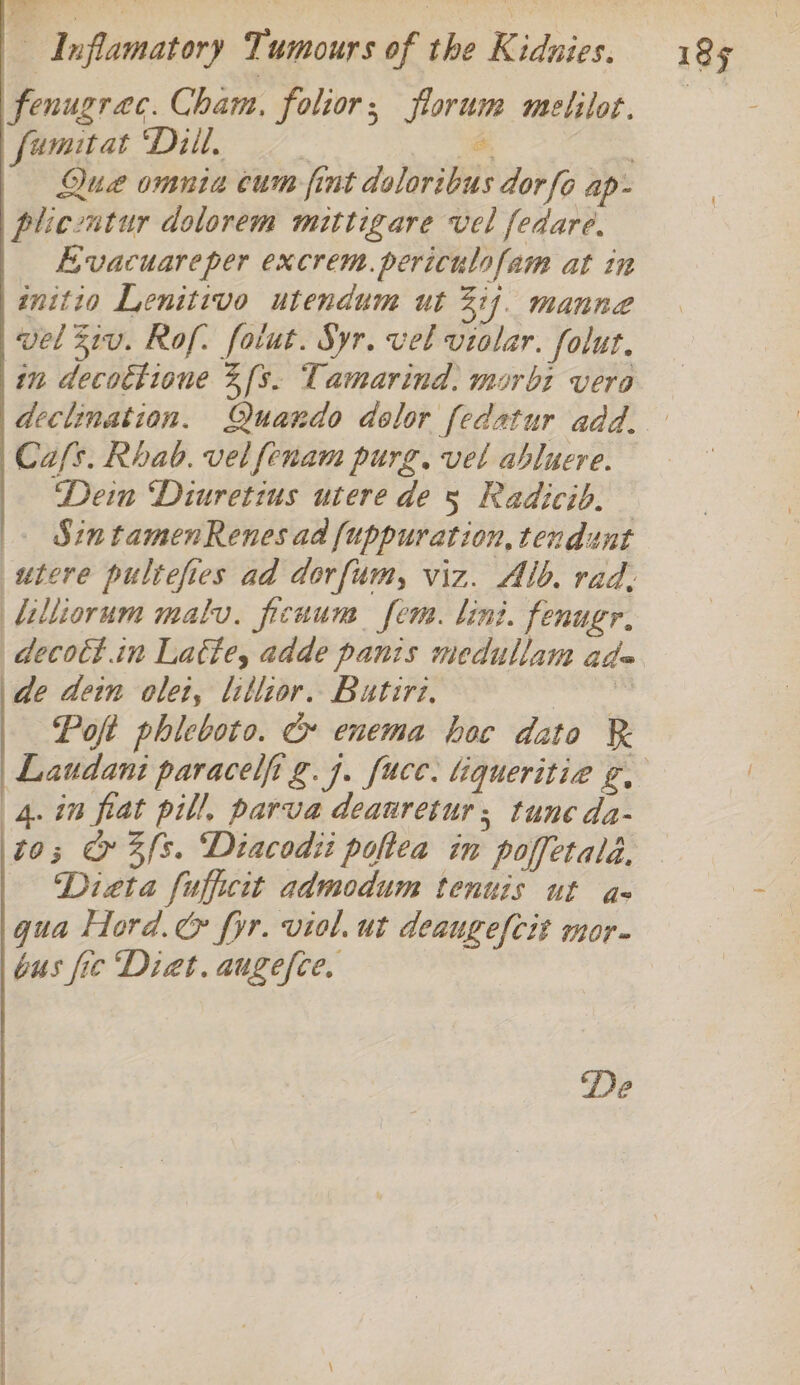 Inflamatory Tumours of the Kidnies. 185
fenugræc. Cham. folior; florum melilot.
ſumitat Dill.
Quæ omnia cum ſint doloribus dorſo ap-
plicentur dolorem mittigare vel ſedare.
Evacuareper excrem.periculoſam at in
initio Lenitivo utendum ut ℥ij. mannæ
vel ℥iv. Roſ. ſolut. Syr. vel violar. ſolut.
in decoctione ℥ſs. Tamarind. morbi vero
declination. Quando dolor ſedatur add.
Caſs. Rhab. vel ſenam purg. vel abluere.
Dein Diuretius utere de 5 Radicib.
Sin tamenRenes ad ſuppuration. tendunt
utere pulteſies ad dorſum, viz. Alb. rad.
lilliorum malv. ficuum ſem. lini. fenugr.
decoct.in Lacte, adde panis medullam ad-
de dein olei, lillior. Butiri.
Poſt phleboto. & enema hoc dato ℞
Laudani paracelſi g. j. ſucc. liqueritiæ g.
4. in fiat pill. parva deauretur; tunc da-
to; & ℥ſs. Diacodii poſtea in poſſetalâ.
Diæta ſufficit admodum tenuis ut a-
qua Hord. & ſyr. viol. ut deaugeſcit mor-
bus ſic Diæt. augeſce.
De